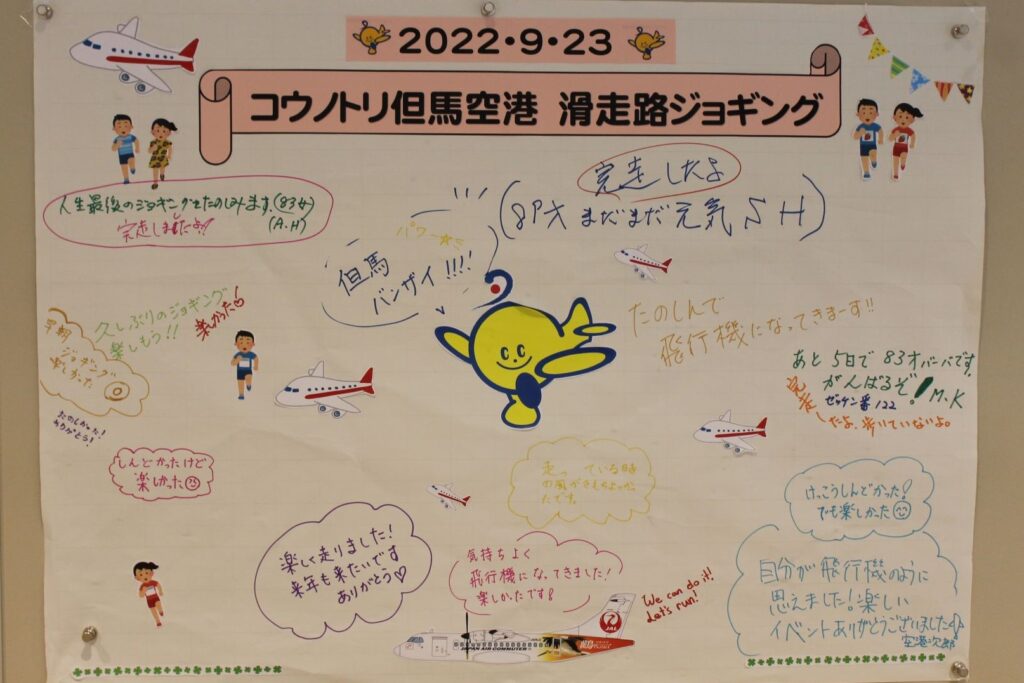 2022・9・23
コウノトリ但馬空港 滑走路ジョギング
人生最後のジョギングをたのしみます。(83女)
(A.H)
完走しましたよ!!
完走したよ
まだまだ元気 S H)
パワー
但馬
バンザイ!!!!
久しぶりのジョギング
楽しもう!!
楽しかった
早朝
ジョギング
楽しかった
たのしかった!
ありがとう!
たのしんで
飛行機になってきまーす!!
あと5日で83才バーバです。
がんばるぞ! M.K
ゼッケン番122
完走したよ、歩いていないよ。
しんどかったけど
楽しかった
走っている時
の風がきもちよかっ
たです。
けっこうしんどかった!
でも楽しかった
楽しく走りました!
来年も来たいです
ありがとう♡
気持ちよく
飛行機になってきました!
楽しかったです!
We can do it!
Let's run!
自分が飛行機のように
思えました!楽しい
イベントありがとうございました
空港次郎
JAPAN AIR COMMUTER
JAL